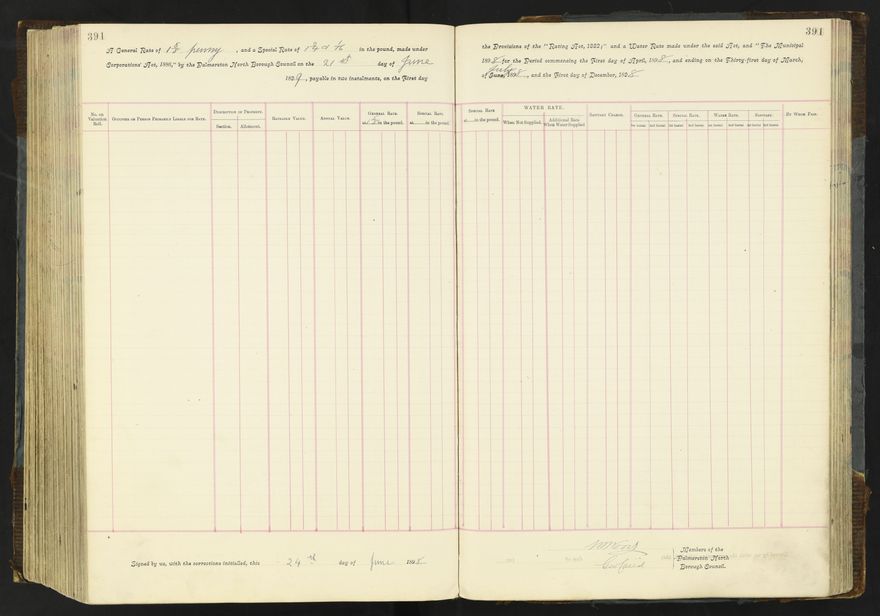 391
A General Rate of penny , and a Special Rate of in the pound, made under
Corporations' Act, 1886," by the Palmerston North Borough Council on the 21st day of June
189 , payable in two instalments, on the First day
No. on Valuation Roll.
Occupier or Person Primarily Liable for Rate.
Description of Property.
Section.
Allotment.
Rateable Value.
Annual Value.
General Rate
at in the pound.
Special Rate
at in the pound.
Signed by us, with the corrections initialled, this 24th day of June 1898
391
the Provisions of the "Rating Act, 1882;" and a Water Rate made under the said Act, and "The Municipal
1898 for the Period commencing the First day of April, 1898, and ending on the Thirty-first day of March,
July
of June, 1898, and the First day of December, 1898.
Special Rate
at in the pound.
WATER RATE.
When Not Supplied.
Additional Rate When Water Supplied
Sanitary Charge.
General Rate.
Special Rate.
Water Rate.
Sanitary.
By Whom Paid.
Members of the
Palmerston North
Borough Council.